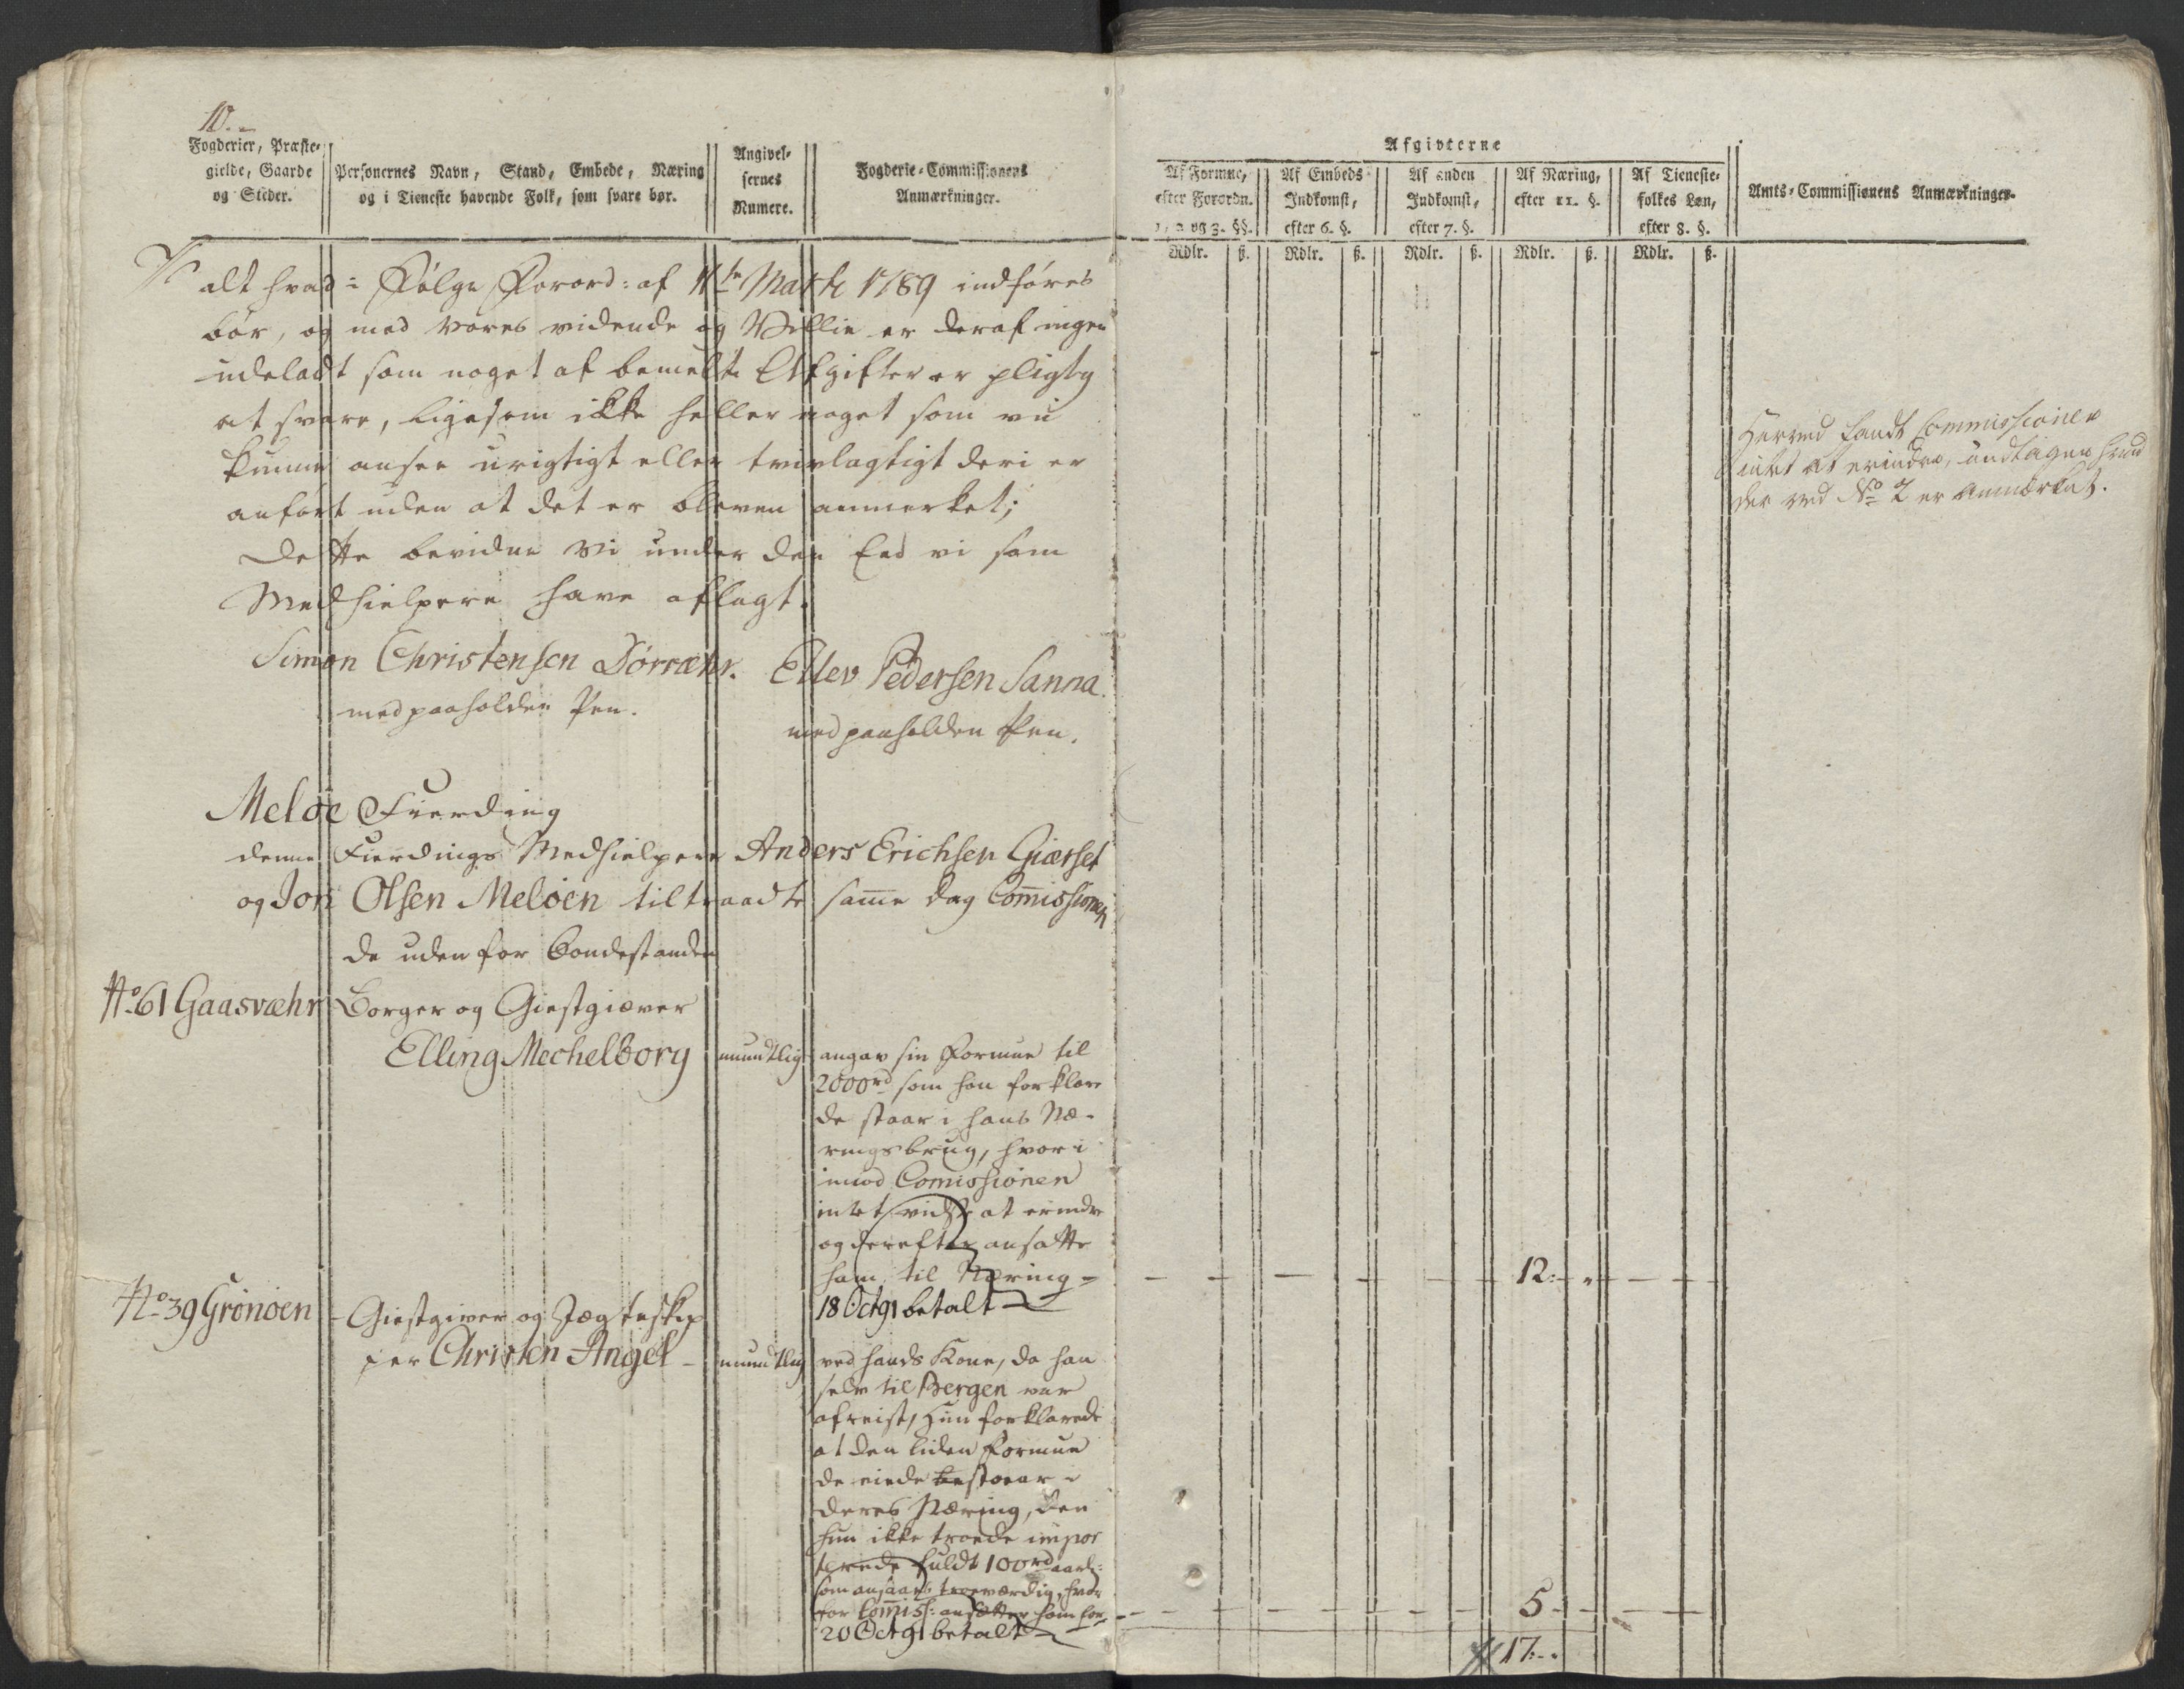 10.
Fogderier, Præste-
gielde, Gaarde
og Steder.
Personernes Navn, Stand, Embede, Næring
og i Tieneste havende Folk, som svare bør.
Angivel-
sernes
Numere.
Fogderie-Commissionens
Anmærkninger.
alt hvad i Følge Forord: af 11te Martii 1789 indføres
bør, og med vores vidende og Villie er deraf ingen
udeladt som noget af bemelte Afgifter er pligtig
at svare, ligesom ikke heller noget som vii
kunne ansee urigtigt eller tvivlagtigt deri er
anført uden at det er bleven anmerket;
Dette bevidne Vi under den Eed vi som
Medhielpere have aflagt.
Simon Christensen Dørvæhr. Ellev Pedersen Sanna.
med paaholden Pen.
med paaholden Pen.
Meløe Fierding
denne Fierdings Medhielpere Anders Erichsen Giærset
og Jon Olsen Meløen tiltraadte samme dag Commissionen
de uden for Bondestanden
No 61 Gaasvæhr Borger og Giestgiæver
Elling Mechelborg mundtlig angav sin Formue til
2000rd som han forklare
de staar i hans Næ-
ringsbrug, hvor i
imod Comissionen
intet vidste at erindre
og derefter ansatte
ham til Næring -
18 Oct 91 betalt
No 39 Grønøen - Giestgiver og Jægteskip
per Christen Angel - mundtlig ved hands Kone, da han
selv til Bergen var
afreist, hun forklarede
at den liden Formue
de eiede bestaar i
deres Næring, den
hun ikke troede impor
terede fuldt 100rd aarl:
som ansaaes troeværdig, hvor
for Commiss: ansætter ham for
20 Oct 91 betalt
Afgivterne
Af Formue,
efter Forordn.
1, 2 og 3. §§.
Af Embeds
Indkomst,
efter 6. §.
Af anden
Indkomst,
efter 7. §.
Af Næring,
efter 11. §.
Af Tieneste-
folkes Løn,
efter 8. §.
Amts-Commissionens Anmærkninger.
Rdlr. ß. Rdlr. ß. Rdlr. ß. Rdlr. ß. Rdlr. ß.
Herved fandt Commissionen
intet at erindre, undtagen hvad
der ved No 2 er anmærket.
12:
5
17:-